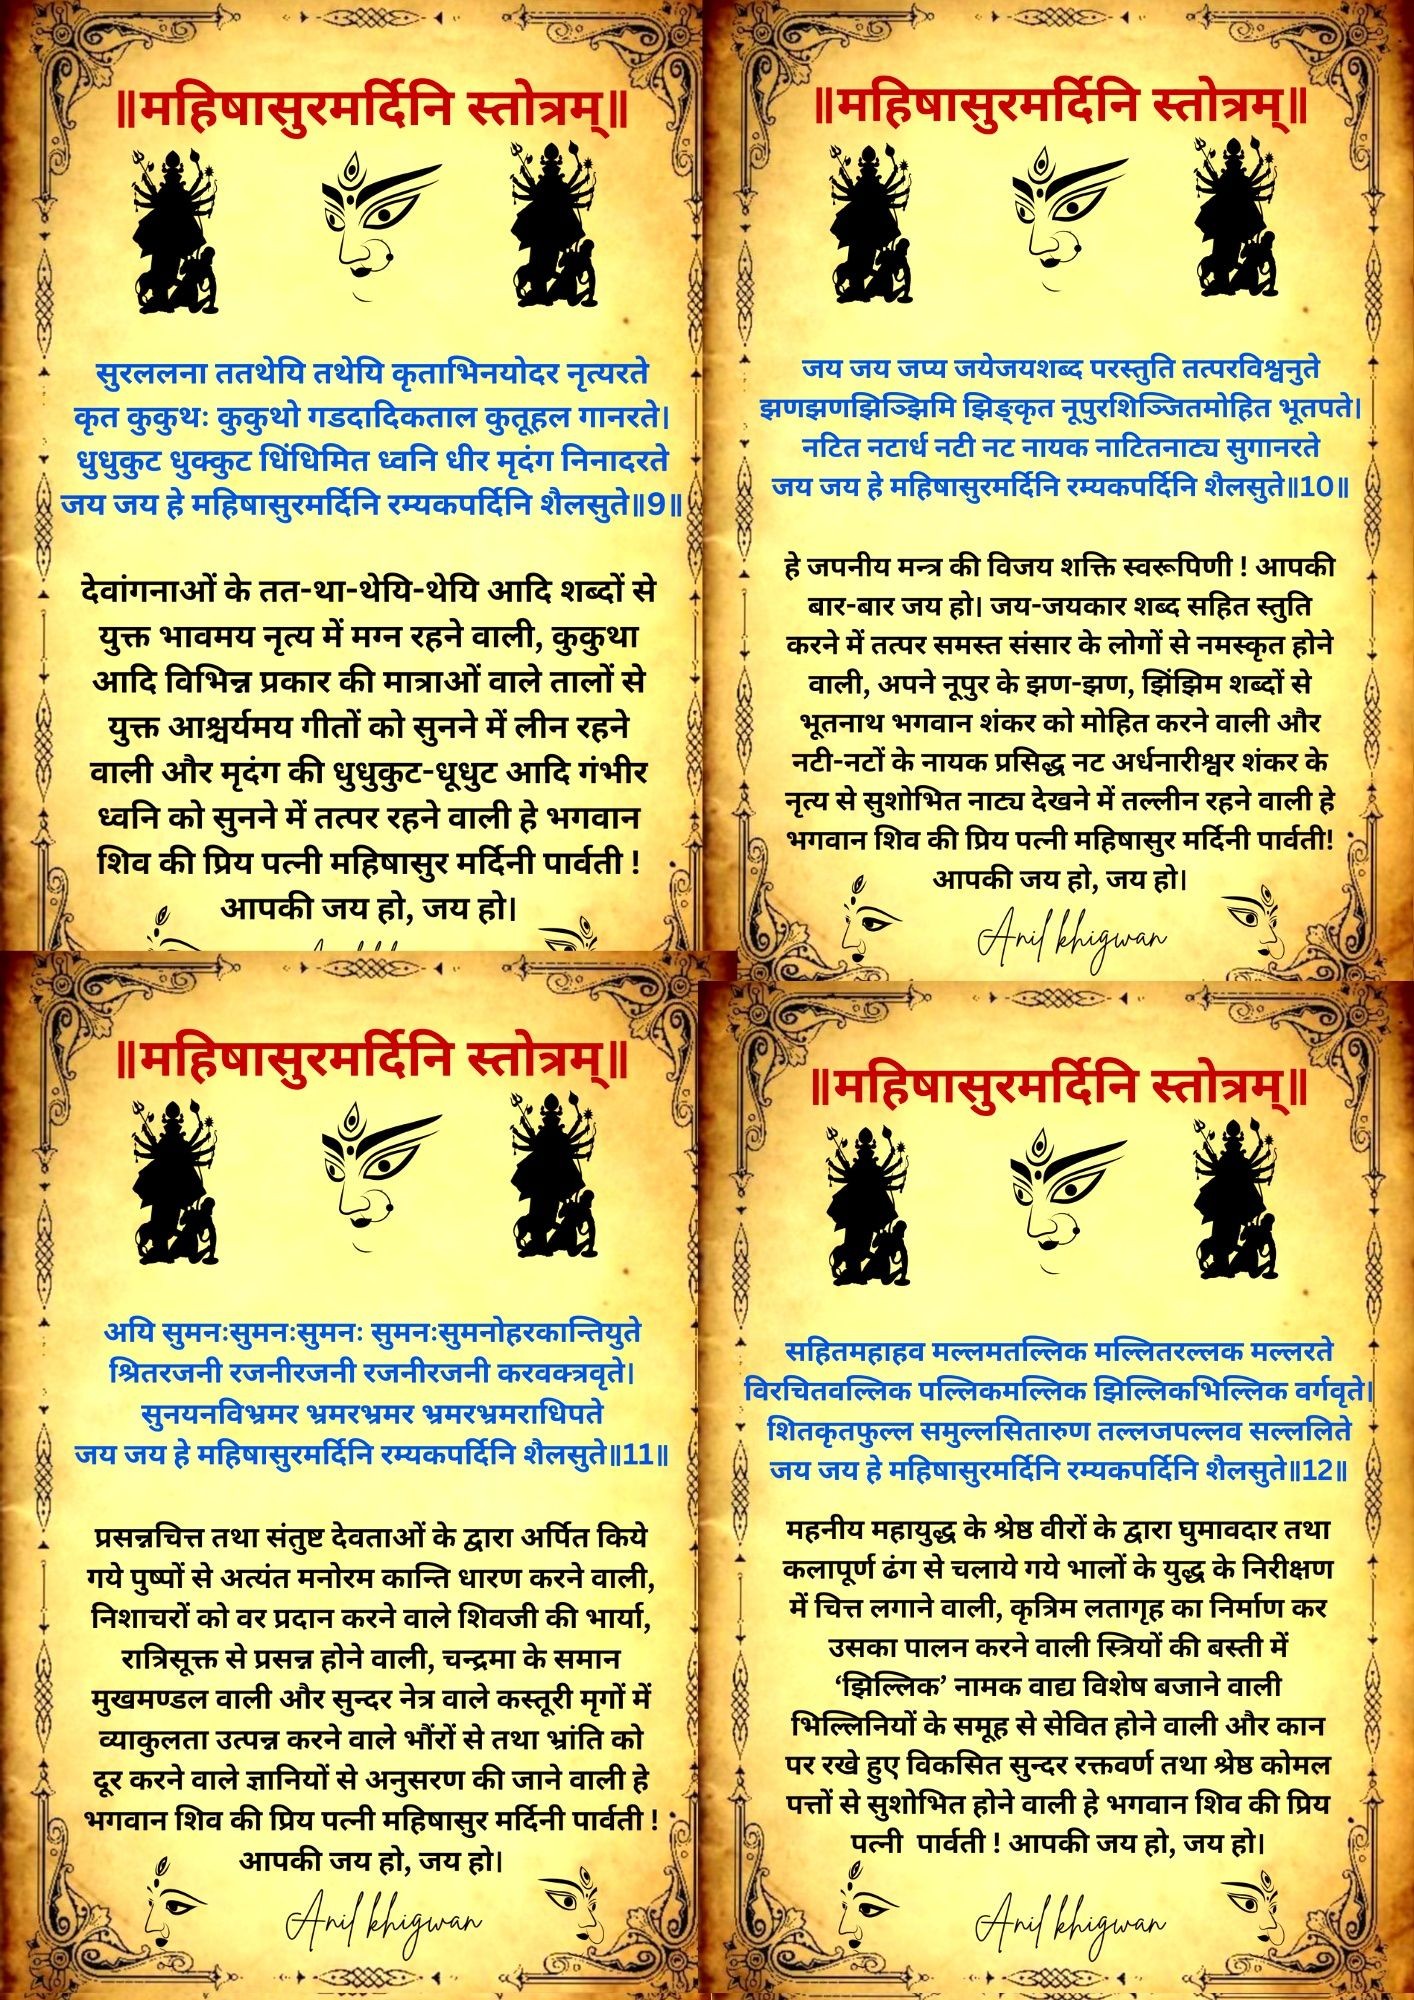 ॥महिषासुरमर्दिनि स्तोत्रम्॥
सुरललना ततथेयि तथेयि कृताभिनयोदर नृत्यरते
कृत कुकुथः कुकुथो गडदादिकताल कुतूहल गानरते।
धुधुकुट धुक्कुट धिंधिमित ध्वनि धीर मृदंग निनादरते
जय जय हे महिषासुरमर्दिनि रम्यकपर्दिनि शैलसुते॥9॥
देवांगनाओं के तत-था-थेयि-थेयि आदि शब्दों से
युक्त भावमय नृत्य में मग्न रहने वाली, कुकुथा
आदि विभिन्न प्रकार की मात्राओं वाले तालों से
युक्त आश्चर्यमय गीतों को सुनने में लीन रहने
वाली और मृदंग की धुधुकुट-धूधुट आदि गंभीर
ध्वनि को सुनने में तत्पर रहने वाली हे भगवान
शिव की प्रिय पत्नी महिषासुर मर्दिनी पार्वती !
आपकी जय हो, जय हो।
॥महिषासुरमर्दिनि स्तोत्रम्॥
जय जय जप्य जयेजयशब्द परस्तुति तत्परविश्वनुते
झणझणझिञ्झिमि झिङ्कृत नूपुरशिञ्जितमोहित भूतपते।
नटित नटार्ध नटी नट नायक नाटितनाट्य सुगानरते
जय जय हे महिषासुरमर्दिनि रम्यकपर्दिनि शैलसुते॥10॥
हे जपनीय मन्त्र की विजय शक्ति स्वरूपिणी ! आपकी
बार-बार जय हो। जय-जयकार शब्द सहित स्तुति
करने में तत्पर समस्त संसार के लोगों से नमस्कृत होने
वाली, अपने नूपुर के झण-झण, झिंझिम शब्दों से
भूतनाथ भगवान शंकर को मोहित करने वाली और
नटी-नटों के नायक प्रसिद्ध नट अर्धनारीश्वर शंकर के
नृत्य से सुशोभित नाट्य देखने में तल्लीन रहने वाली हे
भगवान शिव की प्रिय पत्नी महिषासुर मर्दिनी पार्वती!
आपकी जय हो, जय हो।
Anil khigwan
॥महिषासुरमर्दिनि स्तोत्रम्॥
अयि सुमनःसुमनःसुमनः सुमनःसुमनोहरकान्तियुते
श्रितरजनी रजनीरजनी रजनीरजनी करवक्त्रवृते।
सुनयनविभ्रमर भ्रमरभ्रमर भ्रमरभ्रमराधिपते
जय जय हे महिषासुरमर्दिनि रम्यकपर्दिनि शैलसुते॥11॥
प्रसन्नचित्त तथा संतुष्ट देवताओं के द्वारा अर्पित किये
गये पुष्पों से अत्यंत मनोरम कान्ति धारण करने वाली,
निशाचरों को वर प्रदान करने वाले शिवजी की भार्या,
रात्रिसूक्त से प्रसन्न होने वाली, चन्द्रमा के समान
मुखमण्डल वाली और सुन्दर नेत्र वाले कस्तूरी मृगों में
व्याकुलता उत्पन्न करने वाले भौंरों से तथा भ्रांति को
दूर करने वाले ज्ञानियों से अनुसरण की जाने वाली हे
भगवान शिव की प्रिय पत्नी महिषासुर मर्दिनी पार्वती !
आपकी जय हो, जय हो।
Anil khigwan
॥महिषासुरमर्दिनि स्तोत्रम्॥
सहितमहाहव मल्लमतल्लिक मल्लितरल्लक मल्लरते
विरचितवल्लिक पल्लिकमल्लिक झिल्लिकभिल्लिक वर्गवृते।
शितकृतफुल्ल समुल्लसितारुण तल्लजपल्लव सल्ललिते
जय जय हे महिषासुरमर्दिनि रम्यकपर्दिनि शैलसुते॥12॥
महनीय महायुद्ध के श्रेष्ठ वीरों के द्वारा घुमावदार तथा
कलापूर्ण ढंग से चलाये गये भालों के युद्ध के निरीक्षण
में चित्त लगाने वाली, कृत्रिम लतागृह का निर्माण कर
उसका पालन करने वाली स्त्रियों की बस्ती में
‘झिल्लिक’ नामक वाद्य विशेष बजाने वाली
भिल्लिनियों के समूह से सेवित होने वाली और कान
पर रखे हुए विकसित सुन्दर रक्तवर्ण तथा श्रेष्ठ कोमल
पत्तों से सुशोभित होने वाली हे भगवान शिव की प्रिय
पत्नी  पार्वती ! आपकी जय हो, जय हो।
Anil khigwan